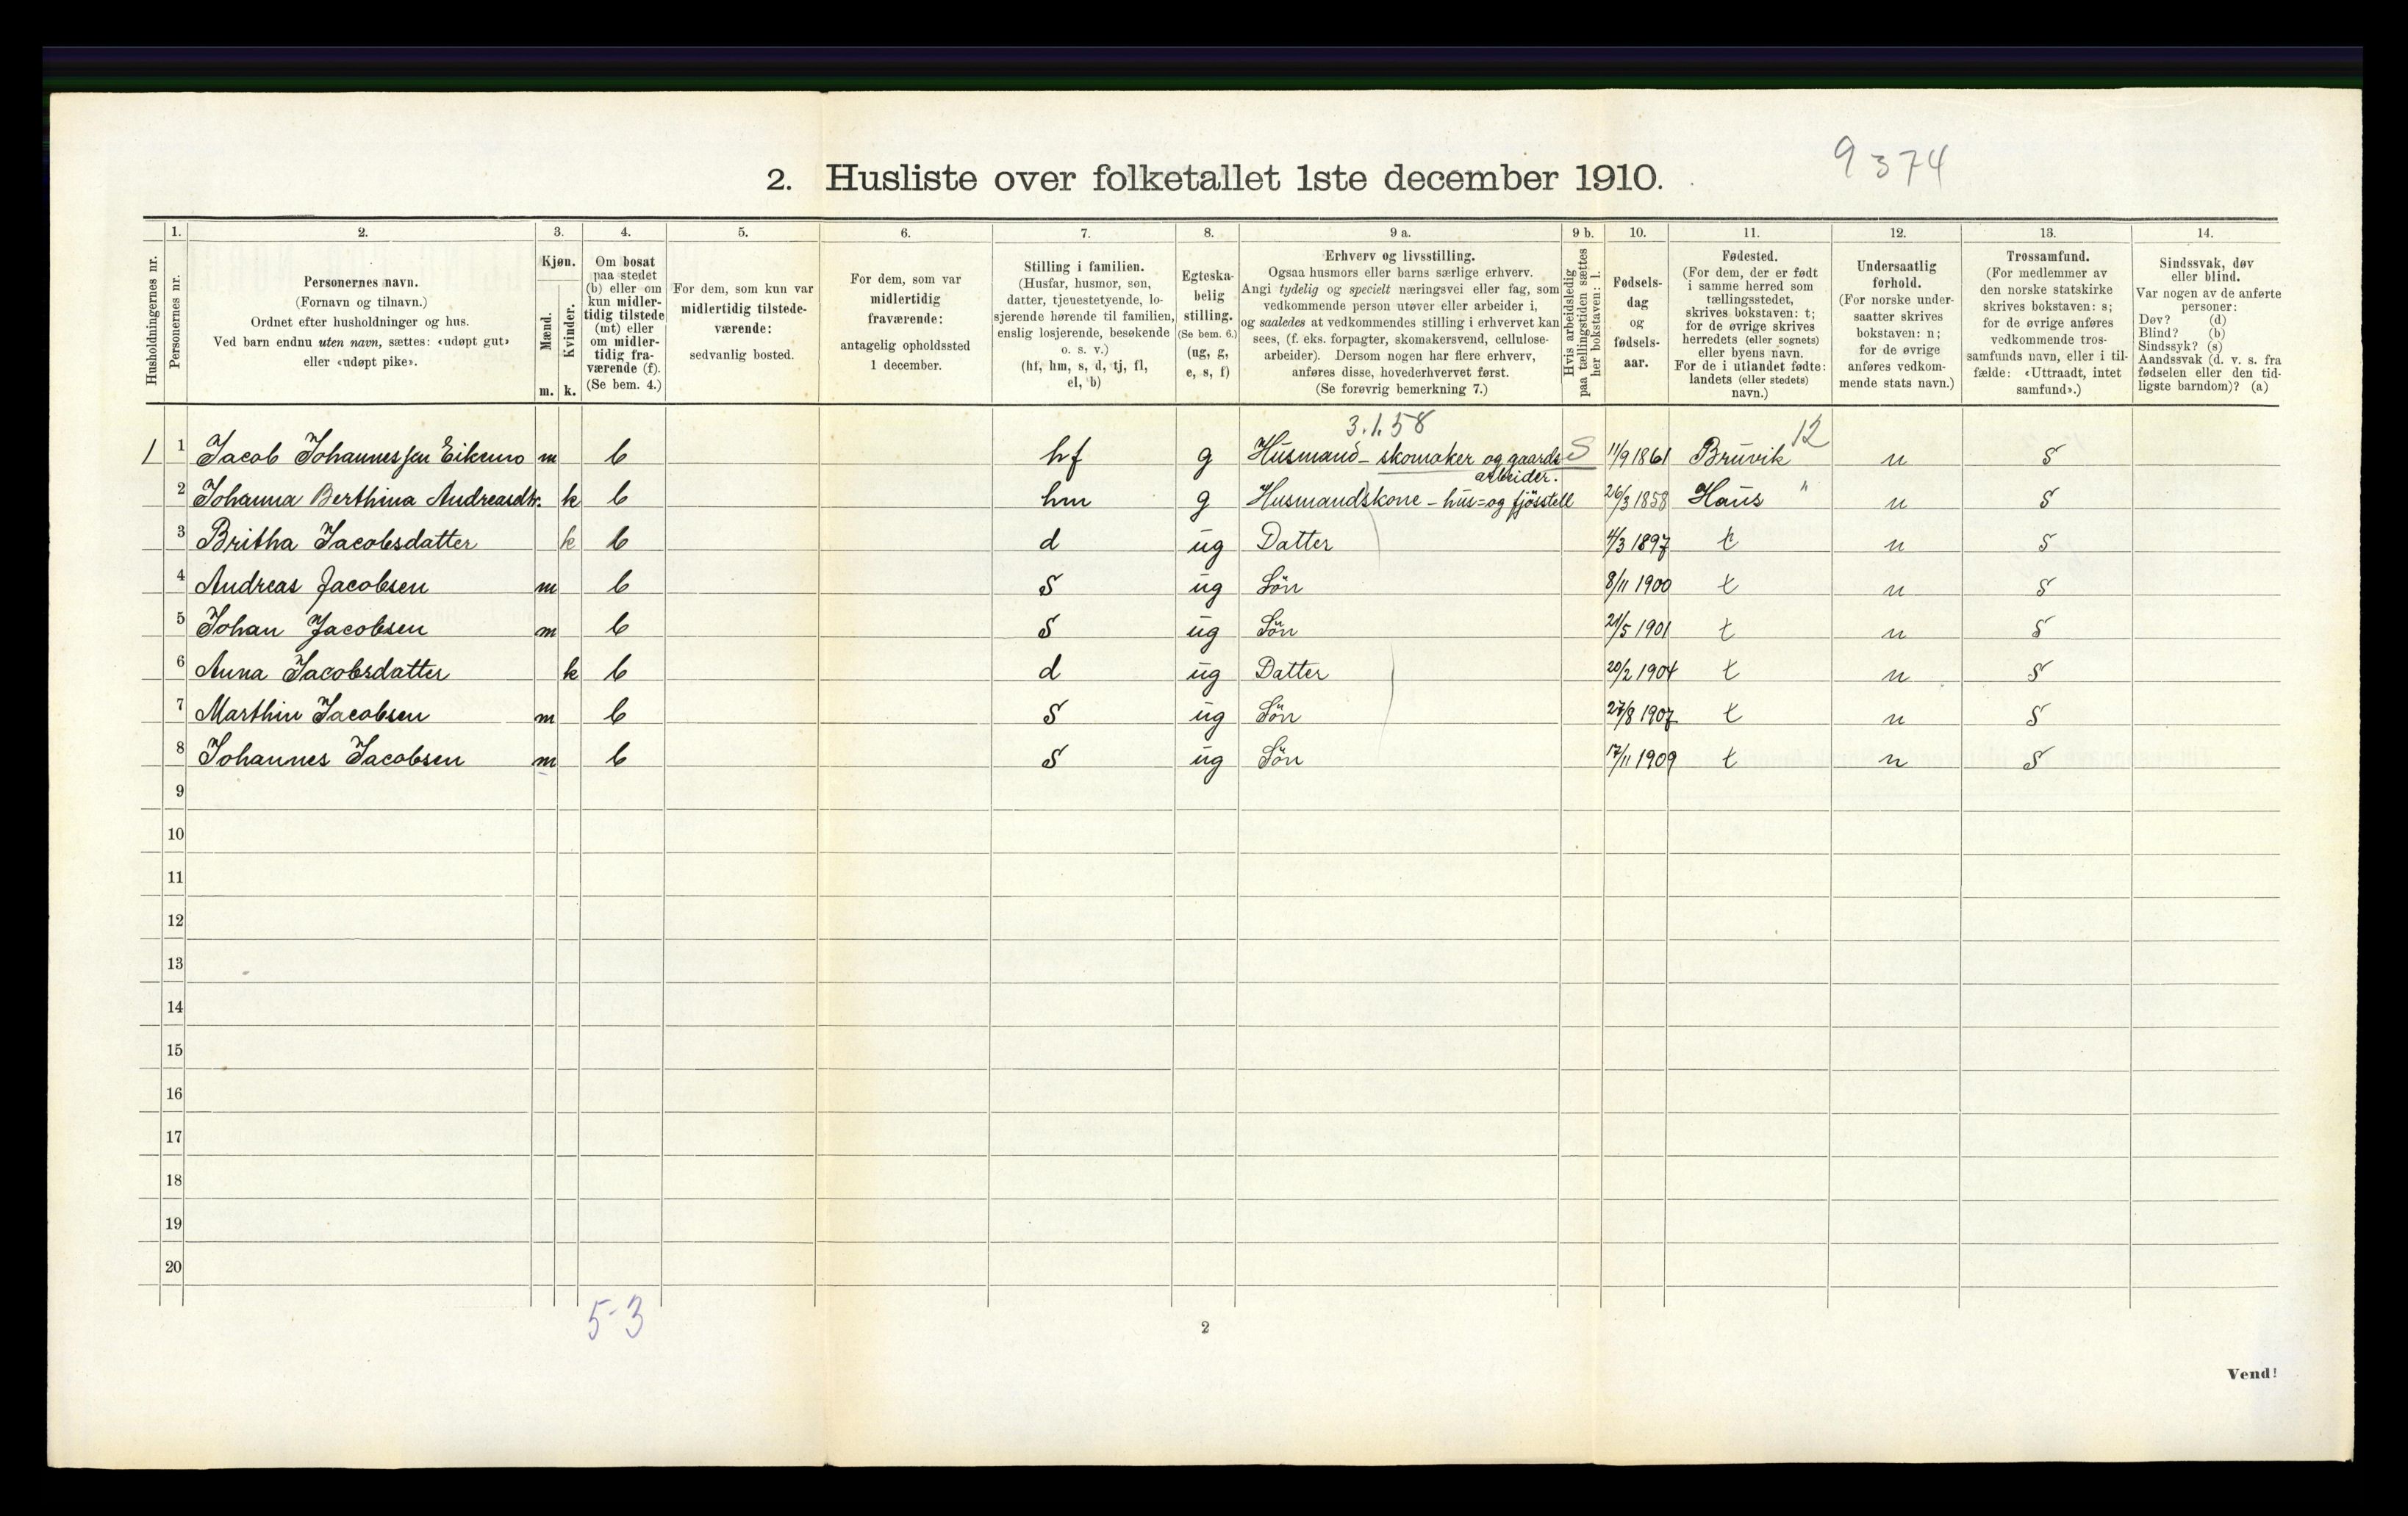 9374
2. Husliste over folketallet 1ste december 1910.
1. 2. 3. 4. 5. 6. 7. 8. 9 a. 9 b. 10. 11. 12. 13. 14.
Husholdningernes nr.
Personernes nr.
Personernes navn.
(Fornavn og tilnavn.)
Ordnet efter husholdninger og hus.
Ved barn endnu uten navn, sættes: «udøpt gut»
eller «udøpt pike».
Kjøn.
Mænd.
Kvinder.
m. k.
Om bosat
paa stedet
(b) eller om
kun midler-
tidig tilstede
(mt) eller
om midler-
tidig fra-
værende (f).
(Se bem. 4.)
For dem, som kun var
midlertidig tilstede-
værende:
sedvanlig bosted.
For dem, som var
midlertidig
fraværende:
antagelig opholdssted
1 december.
Stilling i familien.
(Husfar, husmor, søn,
datter, tjenestetyende, lo-
sjerende hørende til familien,
enslig losjerende, besøkende
o. s. v.)
(hf, hm, s, d, tj, fl,
el, b)
Egteska-
belig
stilling.
(Se bem. 6.)
(ug, g,
e, s, f)
Erhverv og livsstilling.
Ogsaa husmors eller barns særlige erhverv.
Angi tydelig og specielt næringsvei eller fag, som
vedkommende person utøver eller arbeider i,
og saaledes at vedkommendes stilling i erhvervet kan
sees, (f. eks. forpagter, skomakersvend, cellulose-
arbeider). Dersom nogen har flere erhverv,
anføres disse, hovederhvervet først.
(Se forøvrig bemerkning 7.)
Hvis arbeidsledig
paa tællingstiden sættes
her bokstaven: l.
Fødsels-
dag
og
fødsels-
aar.
Fødested.
(For dem, der er født
i samme herred som
tællingsstedet,
skrives bokstaven: t;
for de øvrige skrives
herredets (eller sognets)
eller byens navn.
For de i utlandet fødte:
landets (eller stedets)
navn.)
Undersaatlig
forhold.
(For norske under-
saatter skrives
bokstaven: n;
for de øvrige
anføres vedkom-
mende stats navn.)
Trossamfund.
(For medlemmer av
den norske statskirke
skrives bokstaven: s;
for de øvrige anføres
vedkommende tros-
samfunds navn, eller i til-
fælde: «Uttraadt, intet
samfund».)
Sindssvak, døv
eller blind.
Var nogen av de anførte
personer:
Døv? (d)
Blind? (b)
Sindssyk? (s)
Aandssvak (d. v. s. fra
fødselen eller den tid-
ligste barndom)? (a)
3.1.58 12
1 1 Jacob Johannessen Eikemo m b hf g Husmand - skomaker og gaards S 11/9 1861 Bruvik n s
arbeider.
2 Johanna Berthina Andreasdtr. k b hm g Husmandskone - hus= og fjösstell 26/3 1858 Haus " n s
3 Britha Jacobsdatter k b d ug Datter 4/3 1897 t n s
4 Andreas Jacobsen m b s ug Sön 8/11 1900 t n s
5 Johan Jacobsen m b s ug Sön 21/5 1901 t n s
6 Anna Jacobsdatter k b d ug Datter 20/2 1904 t n s
7 Marthin Jacobsen m b s ug Sön 27/8 1907 t n s
8 Johannes Jacobsen m b s ug Sön 17/11 1909 t n s
9
10
11
12
13
14
15
16
17
18
19
20
5-3
2
Vend!